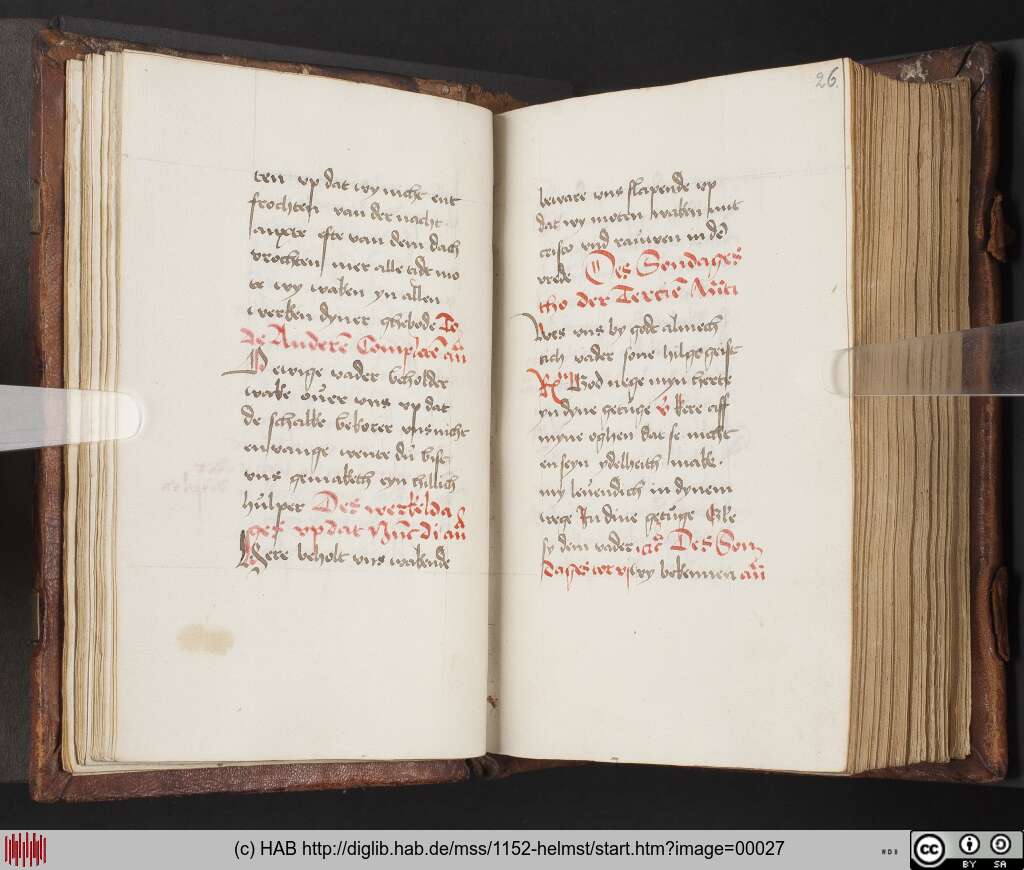 ten vp dat wy nicht ent
frochten van der nacht
anxte efte van dem dach
vrochten mer alle tide mo
te wy waken yn allen
werken dyner ghebode To
de Anderē Complete añ
O ewige vader beholder
wake ouer vns vp dat
de schalke bekorer vns nicht
en vange wente du bist
vns gemaketh eyn ewich
hulper Des werkelda
ges vp dat Nūc di añ
Here beholt vns wakende
26.
beware vns slapende vp
dat wy moten waken mit
cristo vnd rauwen in dē
vrede Des Sondages
tho der Terciē Añti
Wes vns by godt almech
tich vader sone hilge geist
God nege myn herte
yn dyne getuge v̄ kere aff
myne oghen dat se nicht
en seyn ydelheith make
my leuendich in dynem
wege In dine getuge Ere
sy dem vader Des Son
dages wy bekennen añ
(c) HAB http://diglib.hab.de/mss/1152-helmst/start.htm?image=00027
WDB
cc
BY SA